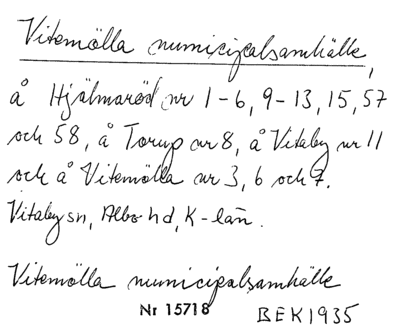 Vitemölla municipalsamhälle,
å Hjälmaröd nr 1-6, 9-13, 15, 57
och 58, å Torup nr 8, å Vitaby nr 11
och å Vitemölla nr 3, 6 och 7.
Vitaby sn, Albo hd, K-län.
Vitemölla municipalsamhälle
Nr 15718 BEK 1935